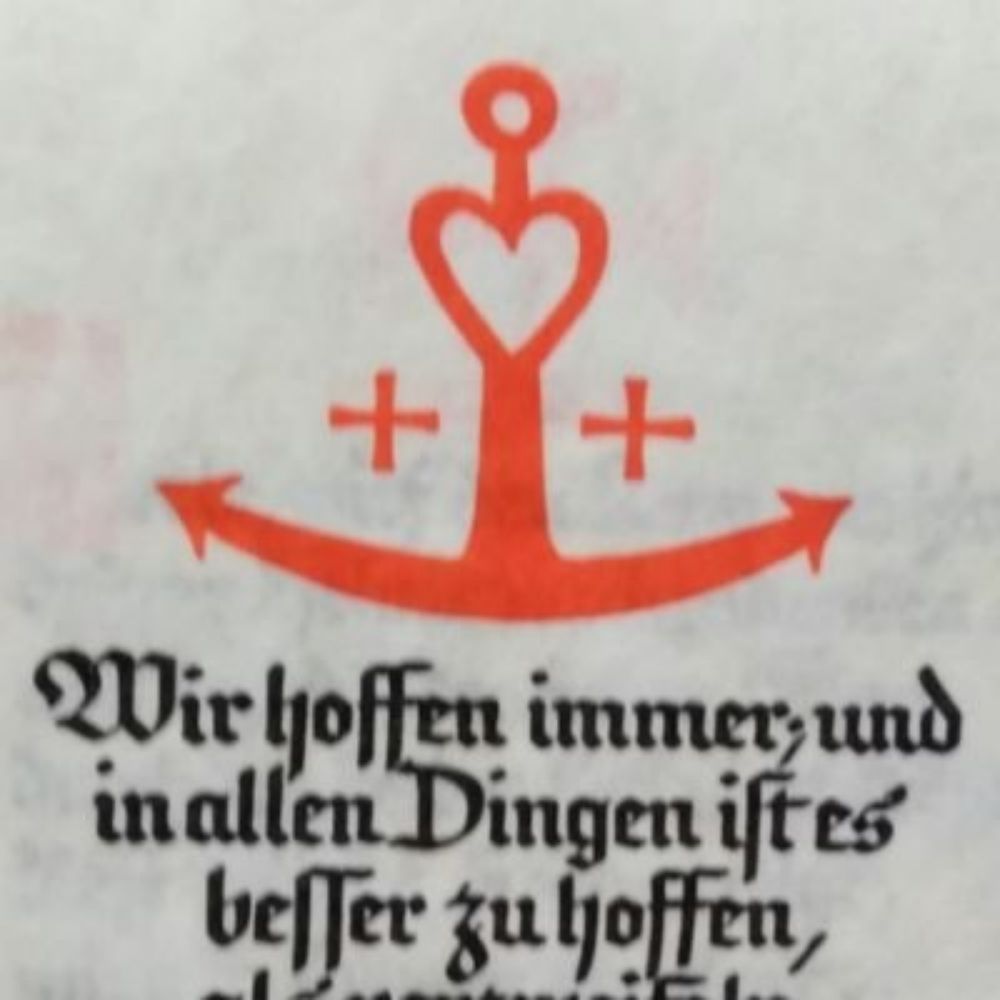 Wir hoffen immer; und
in allen Dingen ist es
besser zu hoffen,